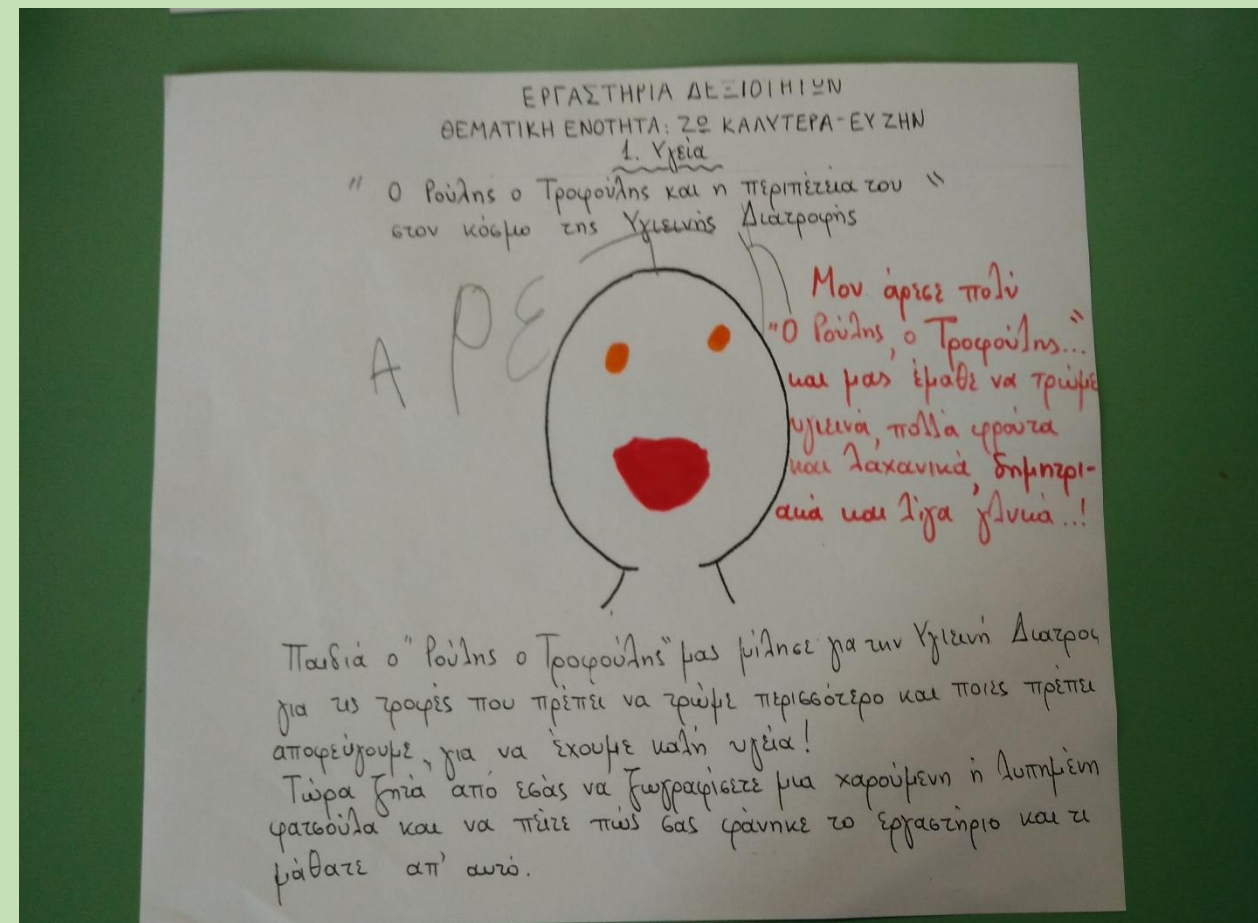 ΕΡΓΑΣΤΗΡΙΑ ΔΕΞΙΟΤΗΤΩΝ
ΘΕΜΑΤΙΚΗ ΕΝΟΤΗΤΑ: ΖΩ ΚΑΛΥΤΕΡΑ-ΕΥ ΖΗΝ
1. Υγεία
" Ο Ρούλης ο Τροφούλης και η περιπέτεια του "
στον κόσμο της Υγιεινής Διατροφής
ΑΡΕ
Μου άρεσε πολύ
"Ο Ρούλης, ο Τροφούλης..."
και μας έμαθε να τρώμε
υγιεινά, πολλά φρούτα
και λαχανικά, δημητρι-
ακά και λίγα γλυκά..!
Παιδιά ο "Ρούλης ο Τροφούλης" μας μίλησε για την Υγιεινή Διατρος
για τις τροφές που πρέπει να τρώμε περισσότερο και ποιες πρέπει
αποφεύγουμε, για να έχουμε καλή υγεία!
Τώρα ζητά από εσάς να ζωγραφίσετε μια χαρούμενη ή λυπημένη
φατσούλα και να πείτε πώς σας φάνηκε το εργαστήριο και τι
μάθατε απ' αυτό.